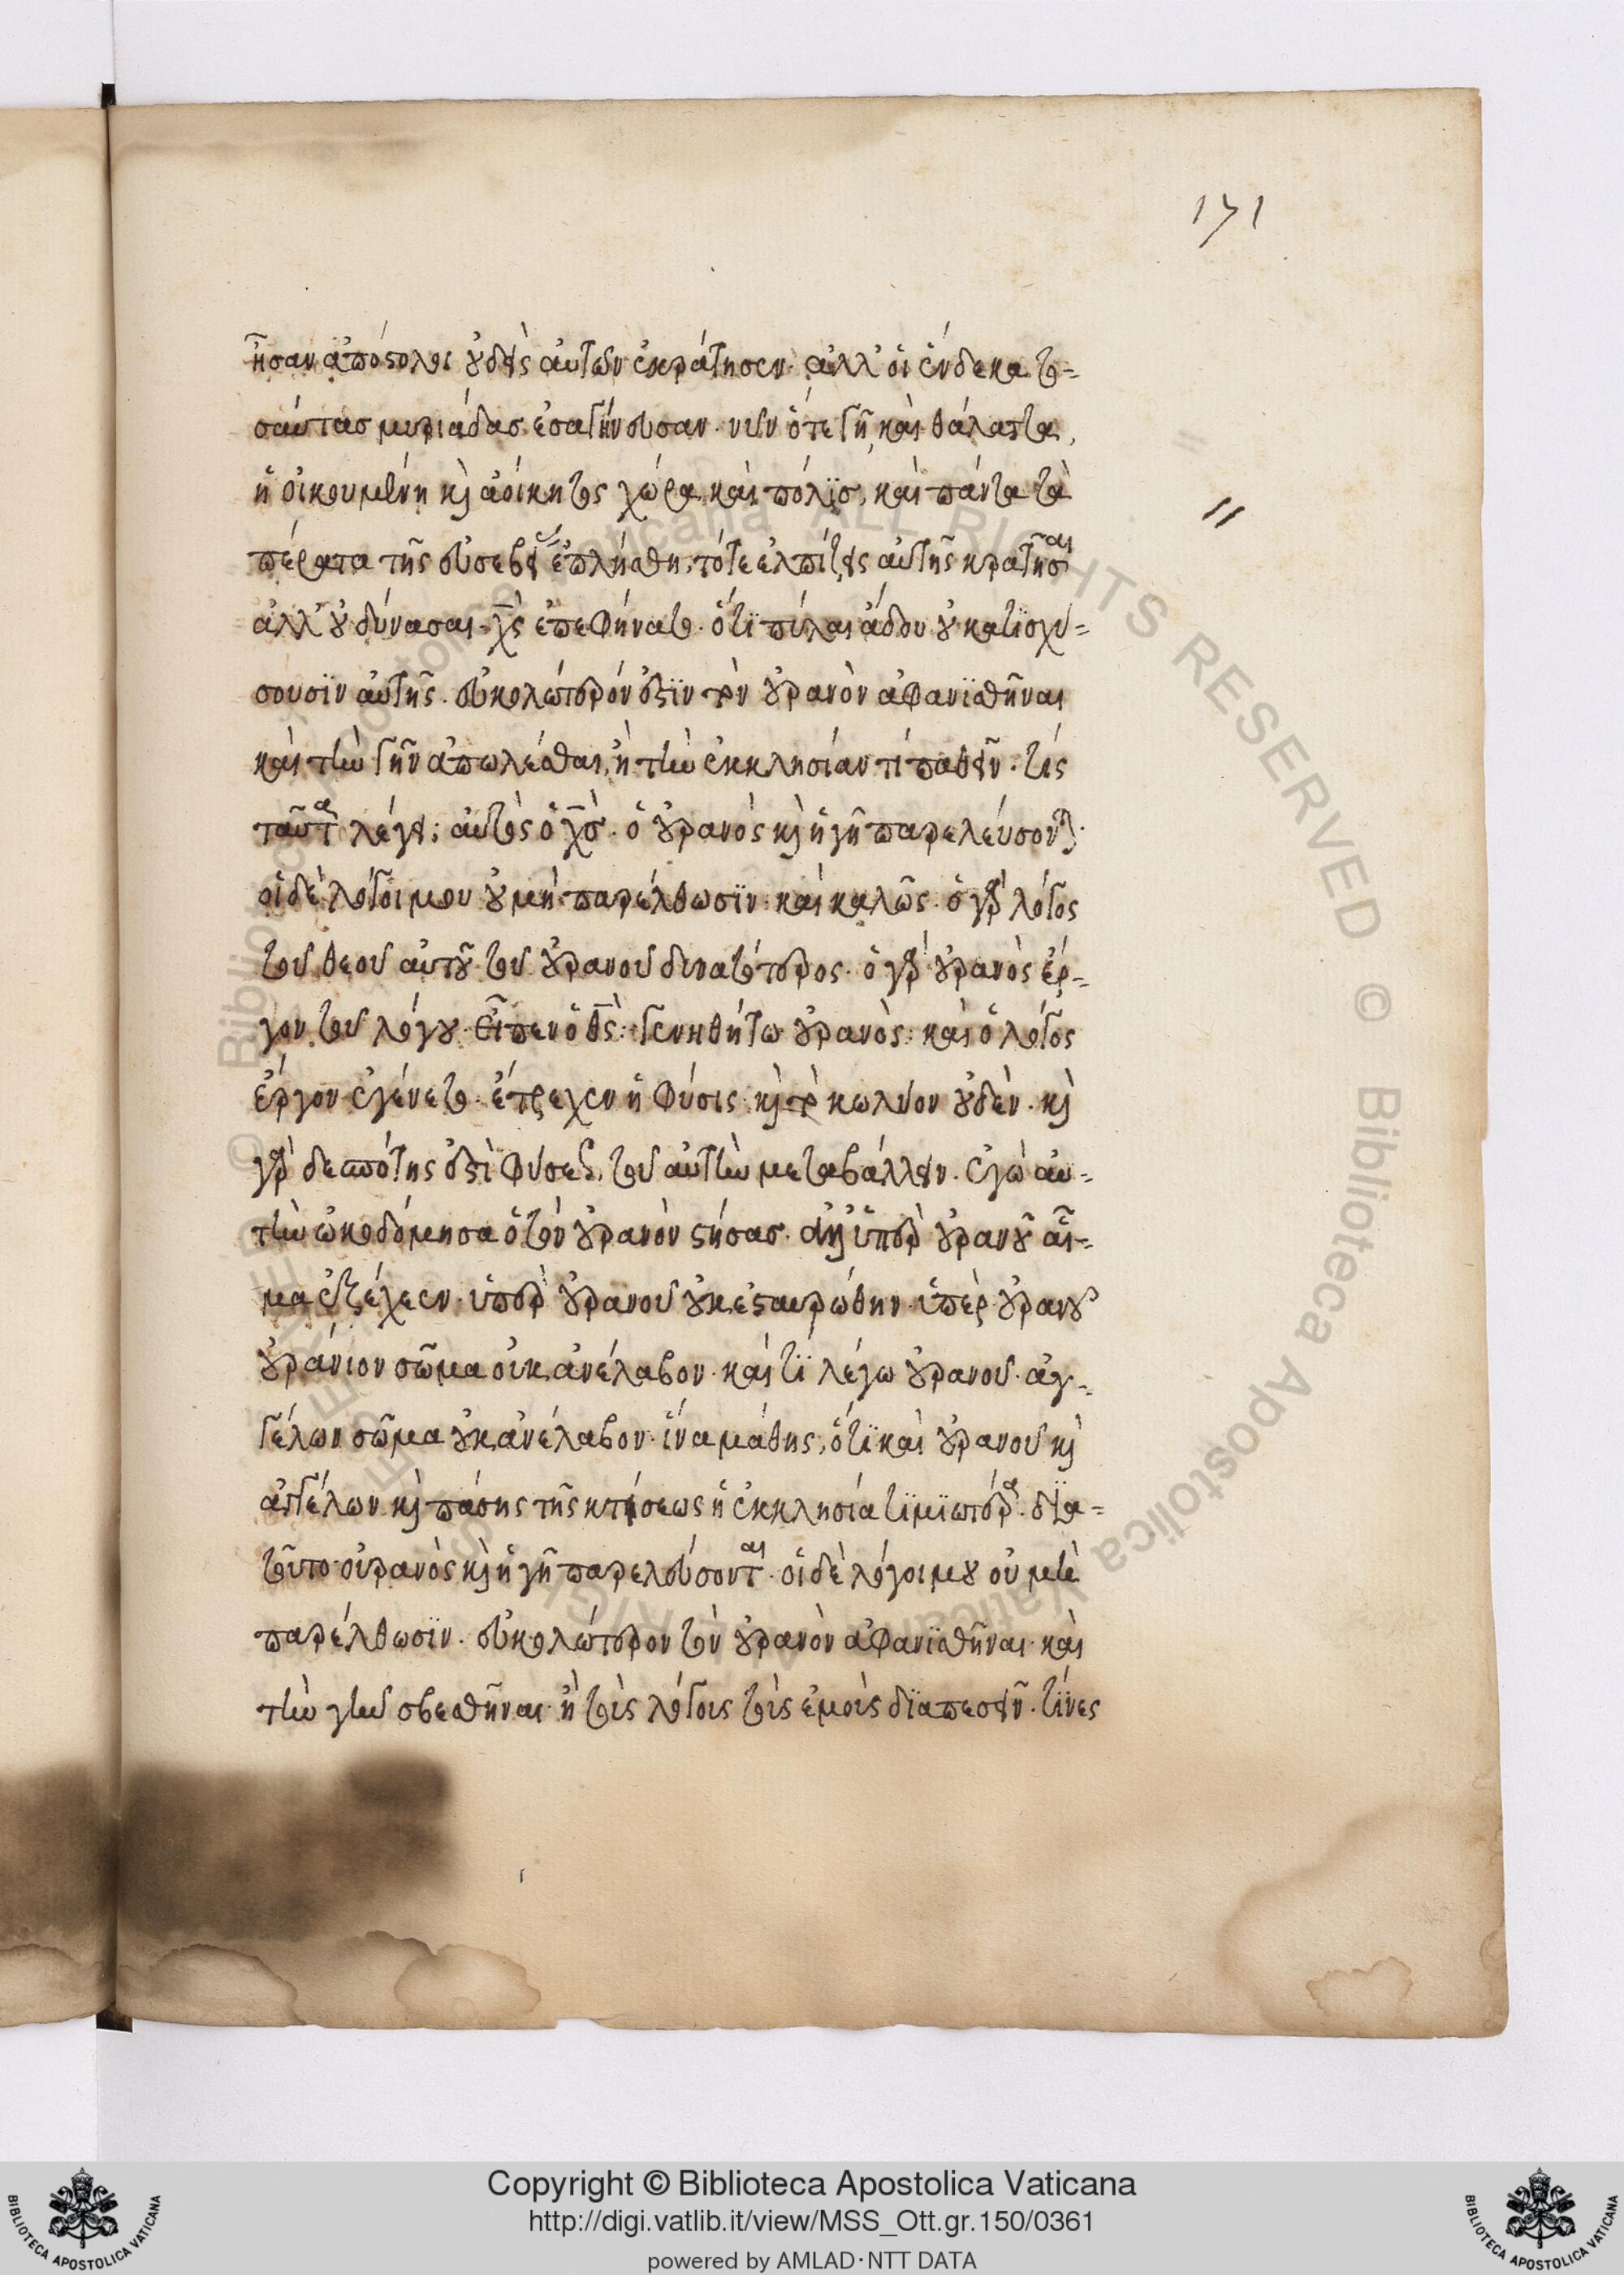 171
ἦσαν ἀπόστολοι οὐδεὶς αὐτῶν ἐκράτησεν· ἀλλ' οἱ ἕνδεκα το=
σαύτας μυριάδας ἐσαγήνευσαν· νῦν ὅτε γῆ, καὶ θάλαττα,
ἡ οἰκουμένη κὶ ἀοίκητος χώρα, καὶ πόλϊς, καὶ πάντα τὰ
πέρατα τῆς εὐσεβεί ἐπλήσθη, τότε ἐλπίζεις αὐτῆς κρατῆσαι
ἀλλ' οὐ δύνασαι. χς ἐπεφήνατο· ὅτϊ πύλαι ἅδου οὐ κατϊσχύ=
σουσϊν αὐτῆς· εὐκολώτερόν ἐστϊν τὸν οὐρανὸν ἀφανϊσθῆναι
καὶ τὴν γῆν ἀπωλέσθαι, ἢ τὴν ἐκκλησίαν τί παθεῖν· τίς
ταῦτα λέγει; αὐτὸς ὁ χς· ὁ οὐρανὸς κὶ ἡ γῆ παρελεύσονται·
οἱ δὲ λόγοι μου οὐ μὴ παρέλθωσϊν· καὶ καλῶς· ὁ γὰρ λόγος
τοῦ θεοῦ αὐτοῦ τοῦ οὐρανοῦ δυνατότερος· ὁ γὰρ οὐρανὸς ἔρ=
γον τοῦ λόγου· Εἶπεν ὁ θς: γενηθήτω οὐρανὸς: καὶ ὁ λόγος
ἔργον ἐγένετο· ἔτρεχεν ἡ φύσις· κὶ τὸ κωλύον οὐδὲν· κὶ
γὰρ δεσπότης ἐστὶ φύσεως, τοῦ αὐτὴν μεταβάλλειν· ἐγὼ αὐ=
τὴν ὠκοδόμησα ὁ τὸν οὐρανὸν στήσας· ὑπὲρ οὐρανοῦ αἷ=
μα ἐξέχεεν· ὑπὲρ οὐρανοῦ οὐκ ἐσταυρώθην· ὑπὲρ οὐρανοῦ
οὐράνιον σῶμα οὐκ ἀνέλαβον· καὶ τϊ λέγω οὐρανοῦ· ἀγ=
γέλων σῶμα οὐκ ἀνέλαβον· ἵνα μάθης, ὅτϊ καὶ οὐρανοῦ κὶ
ἀγγέλων κὶ πάσης τῆς κτήσεως ἡ ἐκκλησία τϊμϊωτέρα· δϊα=
τοῦτο οὐρανὸς κὶ ἡ γῆ παρελεύσονται· οἱ δὲ λόγοι μου οὐ μὴ
παρέλθωσϊν· εὐκολώτερον τὸν οὐρανὸν ἀφανϊσθῆναι· καὶ
τὴν γῆν σβεσθῆναι· ἢ τοῖς λόγοις τοῖς ἐμοῖς δϊαπεσεῖν· τϊνες
Copyright © Biblioteca Apostolica Vaticana
http://digi.vatlib.it/view/MSS_Ott.gr.150/0361
powered by AMLAD·NTT DATA